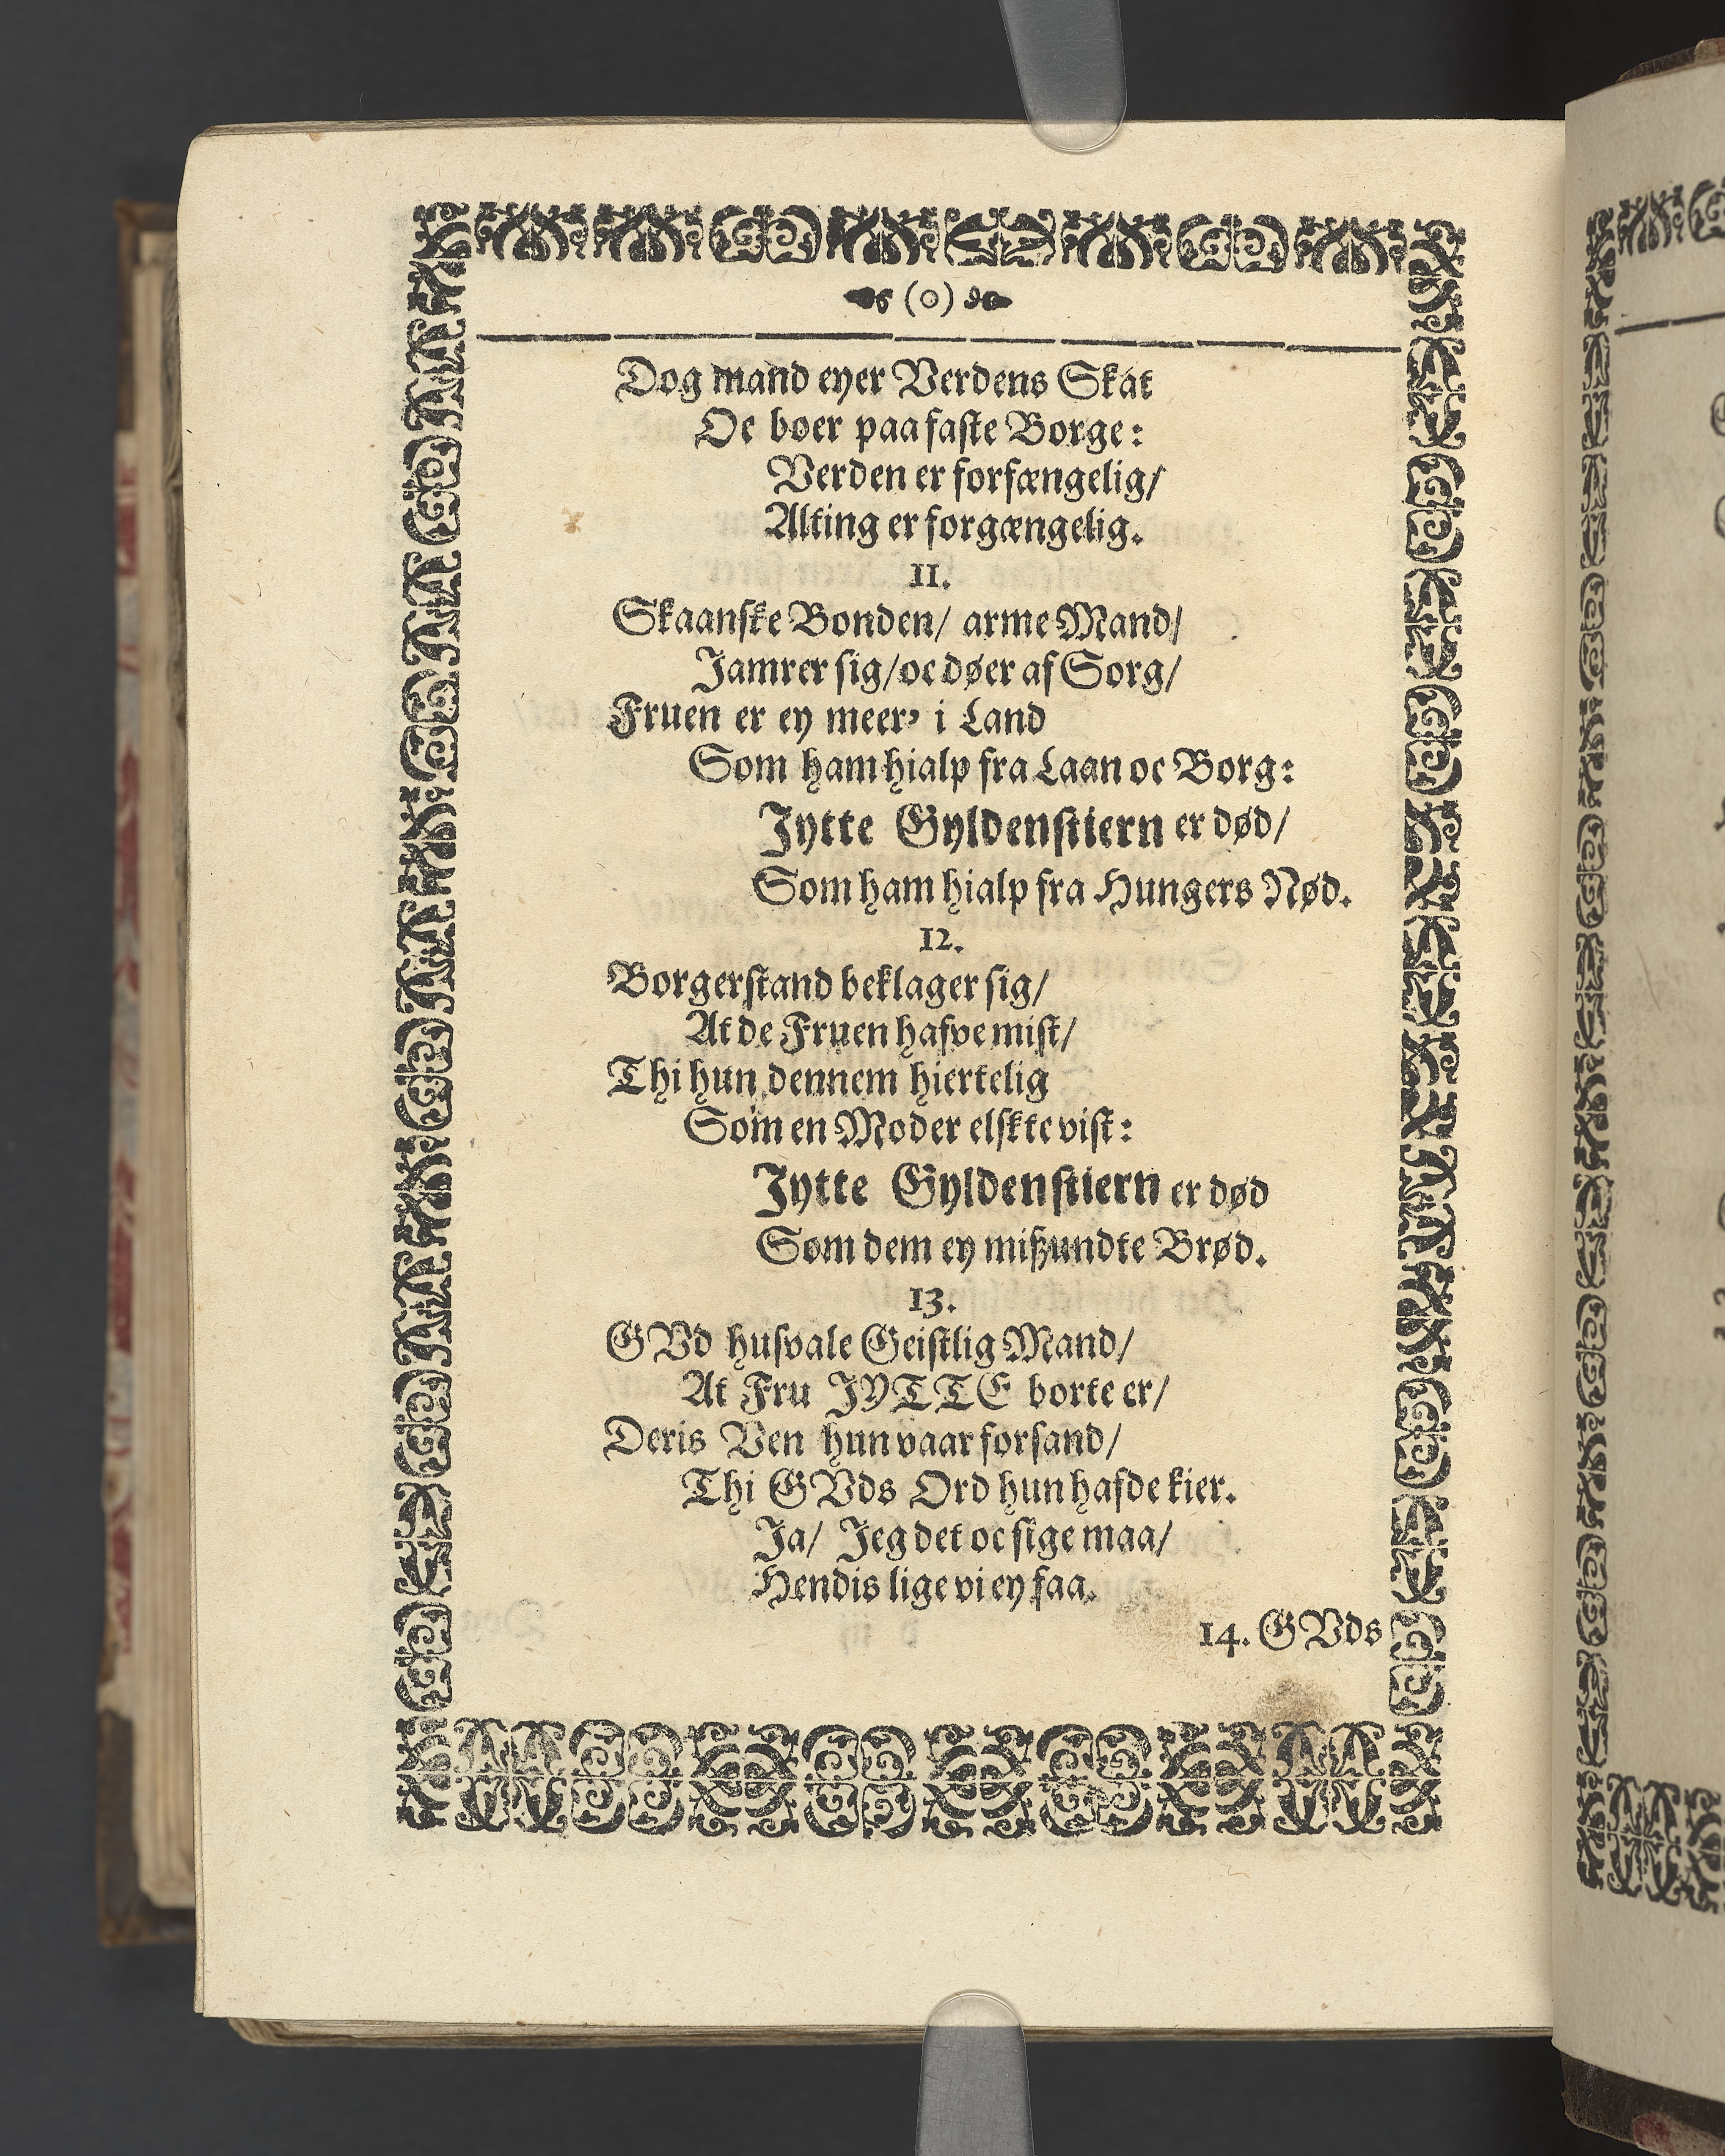 (o)
Dog mand eyer Verdens Skat
Oc boer paa faste Borge:
Verden er forfængelig/
Alting er forgængelig.
11.
Skaanske Bonden/ arme Mand/
Jamrer sig/ oc døer af Sorg/
Fruen er ey meer' i Land
Som ham hialp fra Laan oc Borg:
Jytte Gyldenstiern er død/
Som ham hialp fra Hungers Nød.
12.
Borgerstand beklager sig/
At de Fruen hafve mist/
Thi hun dennem hiertelig
Som en Moder elskte vist:
Jytte Gyldenstiern er død
Som dem ey mißundte Brød.
13.
GVd husvale Geistlig Mand/
At Fru JYTTE borte er/
Deris Ven hun vaar forsand/
Thi GVds Ord hun hafde kier.
Ja/ Jeg det oc sige maa/
Hendis lige vi ey faa.
14. GVds